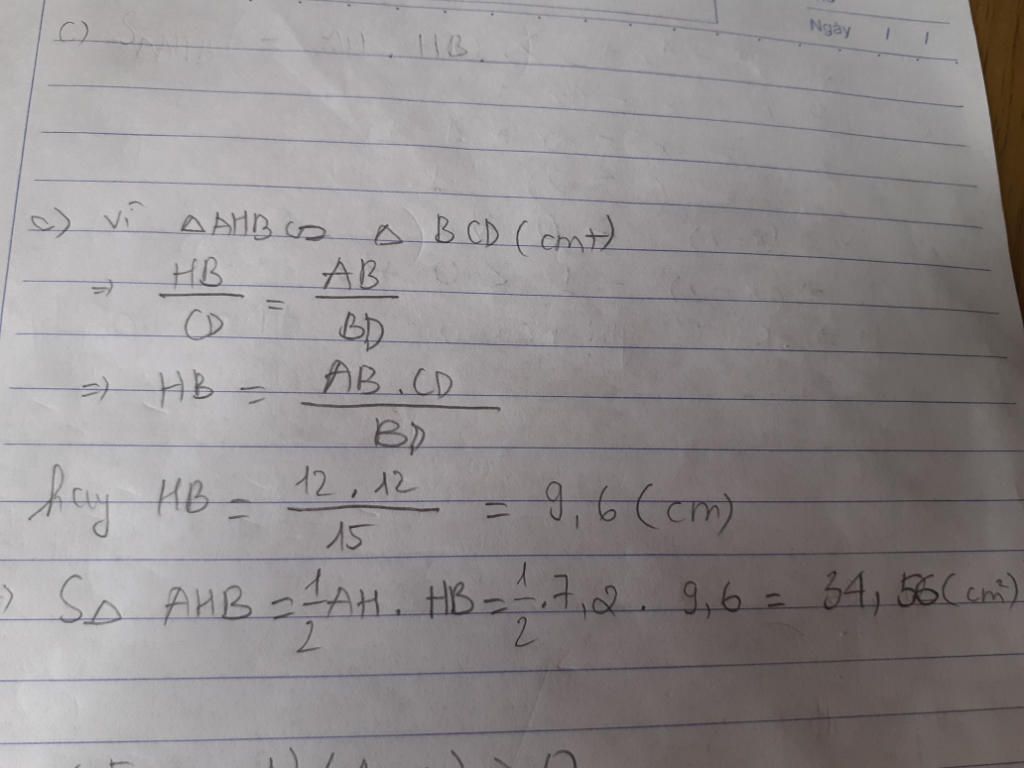 Ngày / /
c) = . HB.
c) vì ΔAHB ∽ Δ BCD (cmt)
⇒ HB/CD = AB/BD
⇒ HB = AB.CD/BD
hay HB = 12.12/15 = 9,6 (cm)
SΔ AHB = 1/2 AH. HB = 1/2 .7,2 . 9,6 = 34,56 (cm²)